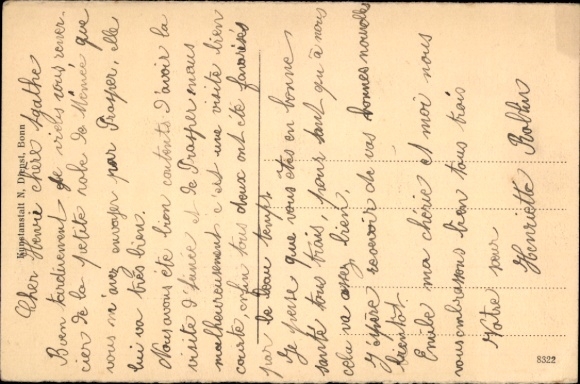 Kunstanstalt N. Diensl, Bonn
Cher Henri chère Agathe
Bien tardivement je viens vous remer-
cier de la petite robe de Mimée que
vous m'avez envoyer par Prosper, elle
lui va très bien.
Nous avons été bien contents d'avoir la
visite d'Aimée et de Prosper mais
malheureusement c'est une visite bien
courte, enfin tous deux ont été favorisés
par le beau temps
Je pense que vous êtes en bonne
santé tous trois, pour tant qu'à nous
cela va assez bien.
J'espère recevoir de vos bonnes nouvelles
bientôt.
Emile ma chérie et moi nous
vous embrassons bien tous trois
Votre sœur
Henriette
8322